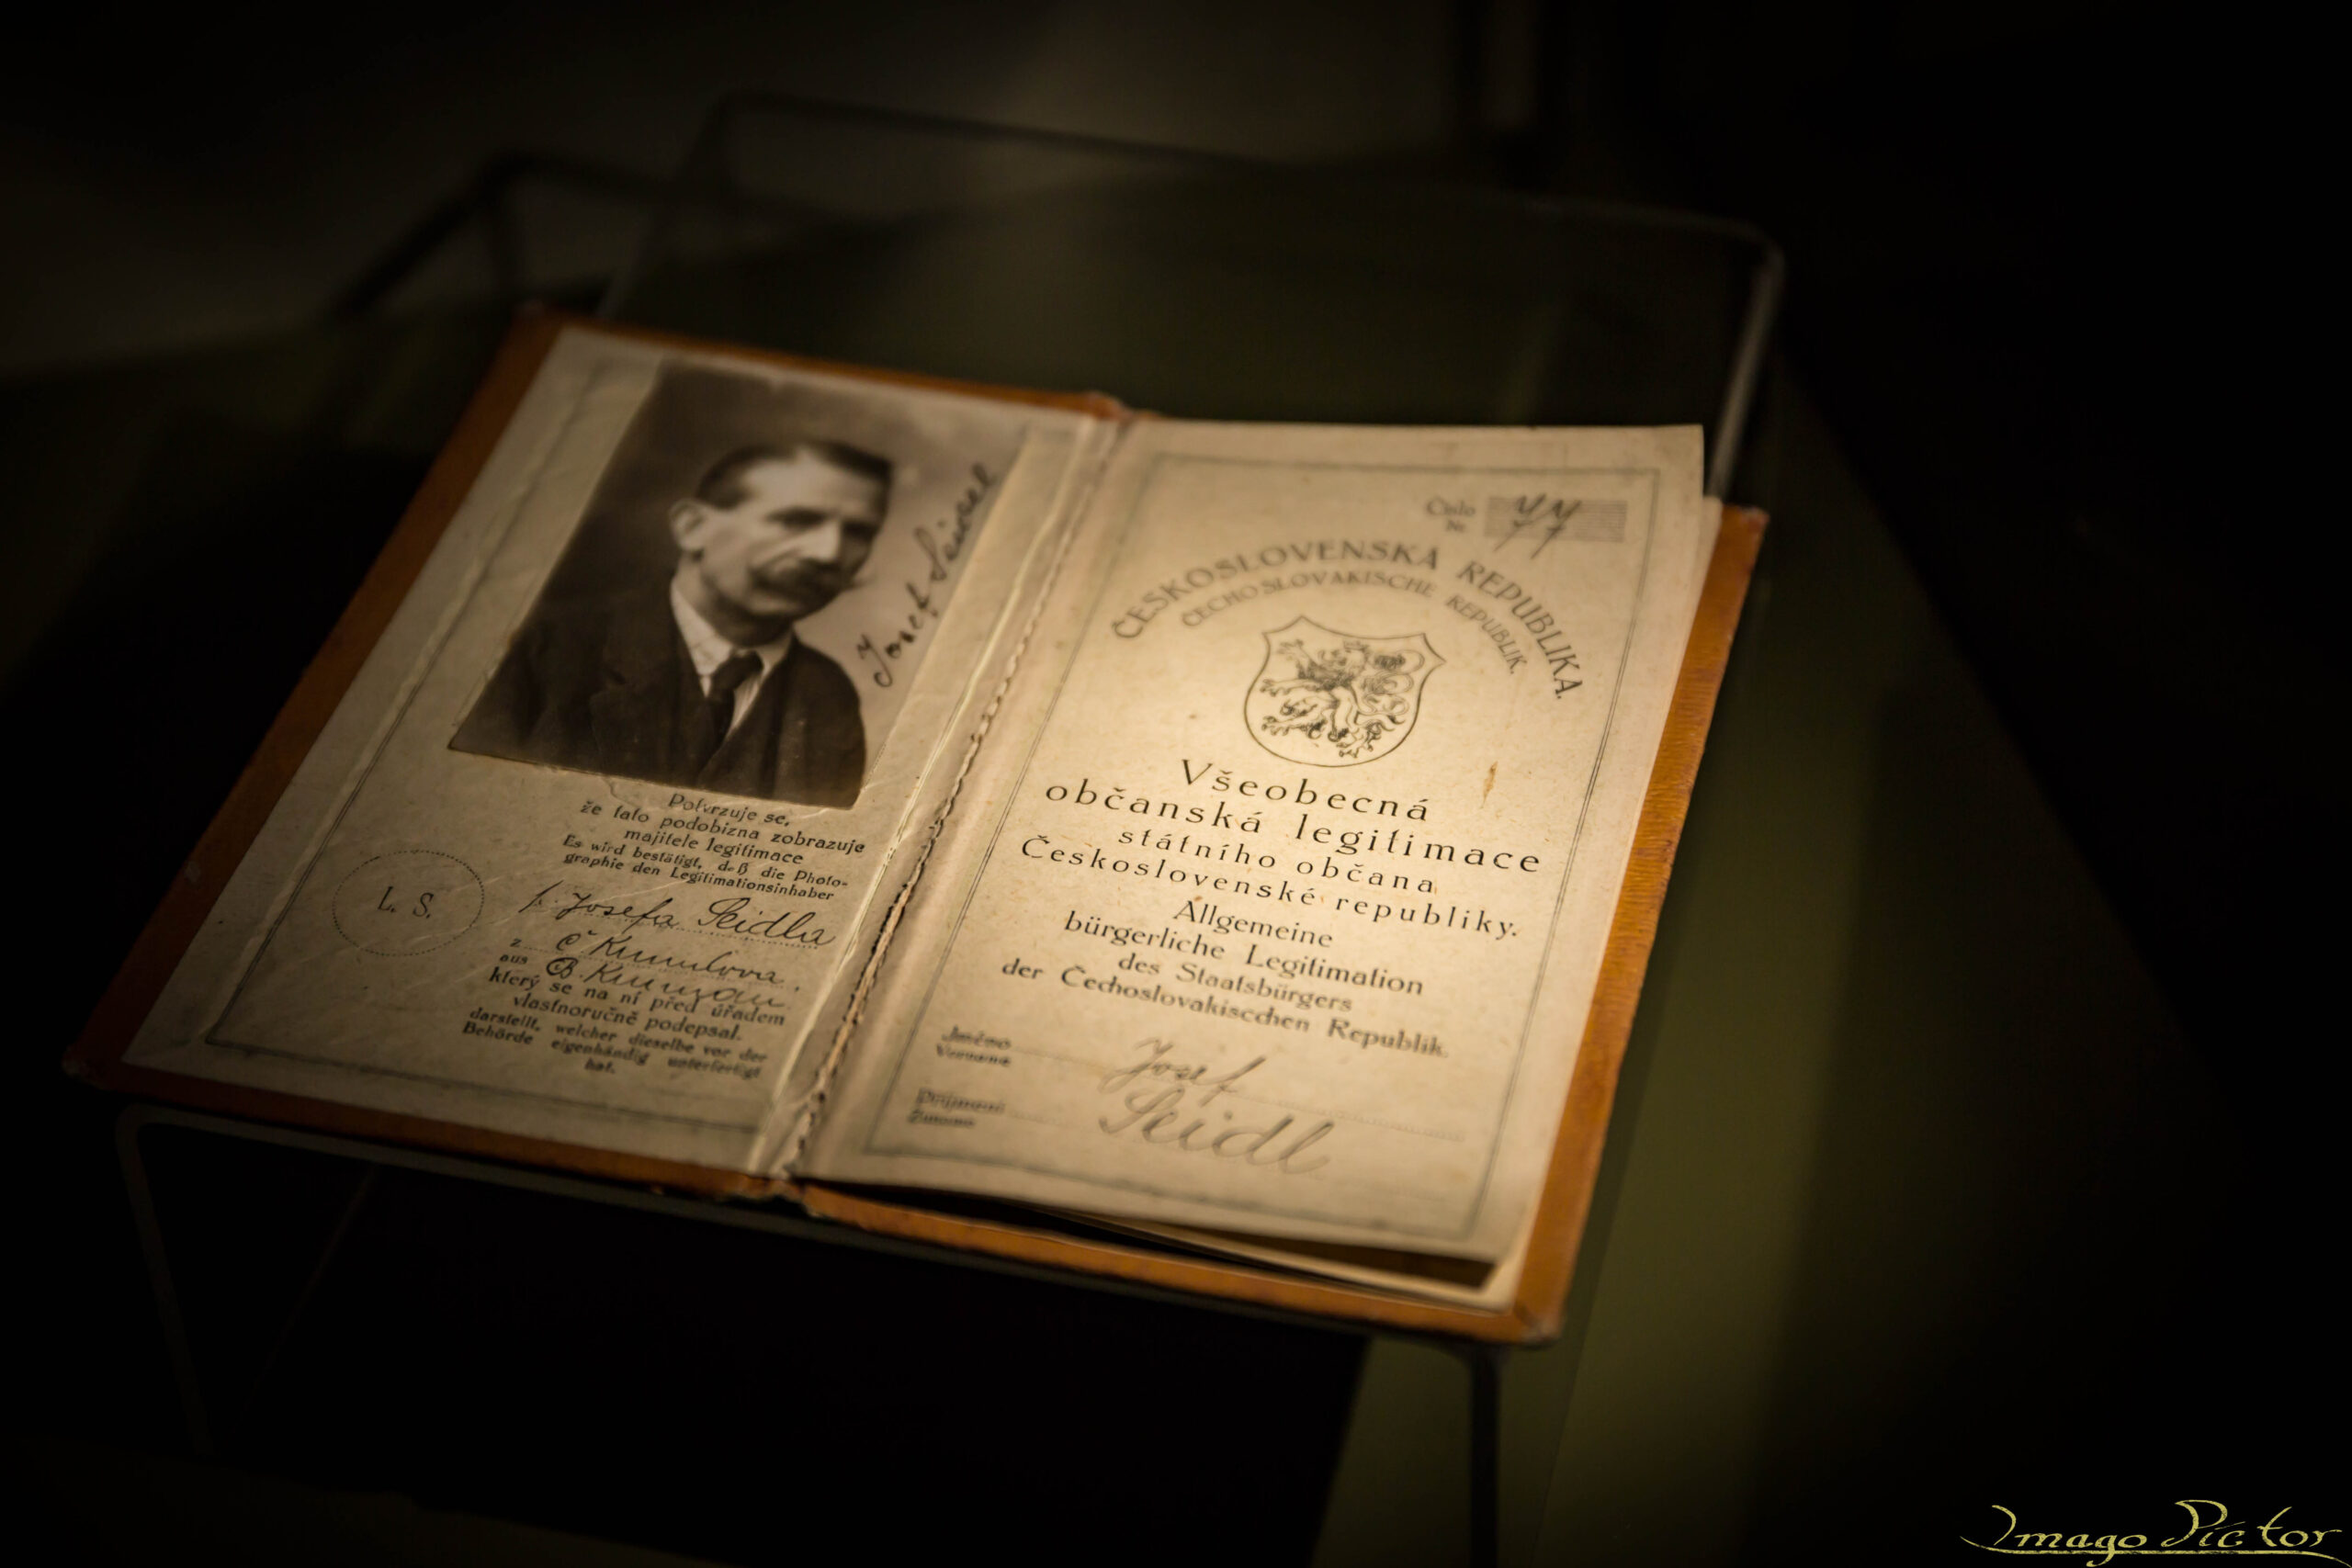 Josef Seidl
Potvrzuje se,
že tato podobizna zobrazuje
majitele legitimace
Es wird bestätigt, daß die Photo-
graphie den Legitimationsinhaber
L. S.
Josefa Seidla
z Č Krumlova.
aus B. Krumau
který se na ní před úřadem
vlastnoručně podepsal.
darstellt, welcher dieselbe vor der
Behörde eigenhändig unterfertigt
hat.
Číslo
Nr.
ČESKOSLOVENSKÁ REPUBLIKA.
ČECHOSLOVAKISCHE REPUBLIK.
Všeobecná
občanská legitimace
státního občana
Československé republiky.
Allgemeine
bürgerliche Legitimation
des Staatsbürgers
der Čechoslovakiscchen Republik.
Jméno
Vorname
Josef
Příjmení
Zuname
Seidl
Imago Pictor